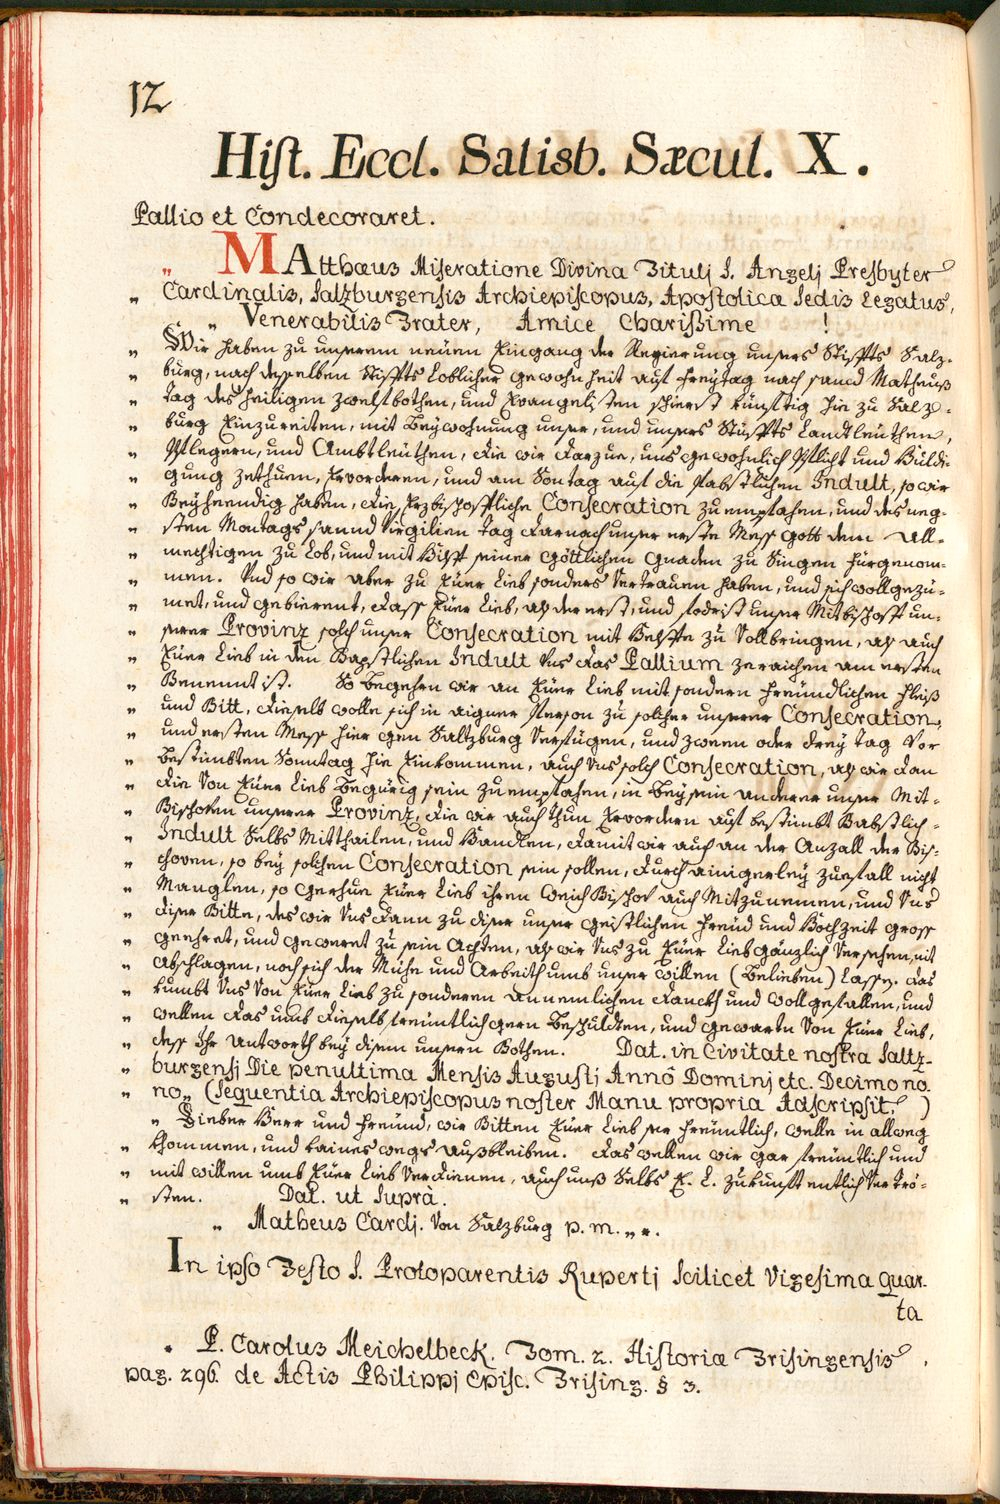 12
Hist. Eccl. Salisb. Sæcul. X.
Pallio et Condecoraret.
„ MAtthæus Miseratione Divina Titulj S. Angelj Presbyter
„ Cardinalis, Salzburgensis Archiepiscopus, Apostolicæ Sedis Legatus,
„ Venerabilis Frater, Amice Charißime !
„ Wir haben zu unserem neuen Eingang der Regierung unsers Stiffts Salz-
„ burg, nach desselben Stiffts loblicher gewohnheit auf Freytag nach sanct Matheuß
„ tag des heiligen zwelfbothen, und Evangelisten schierst künftig hie zu Salz-
„ burg Einzureiten, mit Beywohnung unser, und unsers Stüffts Landtleüthen,
„ Pflegern, und Ambtleüthen, die wir darzue, uns gewohnlich Pflicht und Huldi-
„ gung zethuen, Ervorderen, und am Sontag auf die Pabstlichen Indult, so wir
„ Beyhendig haben, die Erzbischoffliche Consecration zu empfahen, und des neg-
„ sten Montags sannd Virgilien tag darnach unser erste Mess Gott dem All-
„ mechtigen zu Lob, und mit Hilff seiner Göttlichen Gnaden zu Singen fürgenom-
„ men. Und so wir aber zu Euer Lieb sonders Vertrauen haben, und sich wollgezü-
„ met, und gebierent, dass Euer Lieb, als der erst, und fodrist unser Mitbischoff un-
„ serer Provinz solch unser Consecration mit Helffe zu Vollbringen, als auch
„ Euer Lieb in den Bapstlichen Indult Uns das Pallium zeraichen am ersten
„ Benennt ist. So Begehen wir an Euer Lieb mit sondern freündlichen fleiß
„ und Bitt, dieselb wolle sich in aigner Person zu solcher unserer Consecration,
„ und ersten Mess hier gen Saltzburg Verfügen, und zween oder drey tag Vor
„ bestimbten Sonntag hie Einkommen, auch Uns solch Consecration, als wir dan
„ die Von Euer Lieb Begürig sein zu empfahen, in Beysein anderer unser Mit-
„ Bischoven unserer Provinz, die wir auch thun Ervordern auf bestimbt Babstlich-
„ Indult Selbs Mitthailen, und Handlen, damit wir auch an der Anzall der Bis-
„ choven, so bey solchen Consecration sein sollen, durch ainigerley zuefall nicht
„ Manglen, so gerhue Euer Lieb ihren Weich Bischov auch Mitzunemen, und Uns
„ diser Bitte, des wir Uns dann zu diser unser geistlichen Freüd und Hochzeit gross
„ geehret, und geweret zu sein Achten, als wir Uns zu Euer Lieb gänzlich Versehen, nit
„ Abschlagen, noch sich der Mühe und Arbeith umb unser willen (Belieben) lasse. das
„ kumbt Uns Von Euer Lieb zu sonderen annemlichen danckh und wollgefallen, und
„ wellen das umb dieselb freüntlich gern Beschuldten, und gewarte Von Euer Lieb,
„ dess Ihr Antworth bey disem unsern Bothen. Dat. in Civitate nostra Saltz-
„ burgensj Die penultima Mensis Augustj Annô Dominj etc. Decimo no.
„ no„ (Sequentia Archiepiscopus noster Manu propria Adscripsit. )
„ Lieber Herr und Freünd, wir Bitten Euer Lieb ser freüntlich, welle in allweg
„ khommen, und kaines wegs außbleiben. das wellen wir gar freüntlich und
„ mit willen umb Euer Lieb Verdienen, auch unß Selbs E. L. zukunfft entlich Vertrö-
„ sten. Dat. ut Suprà.
„ Matheus Cardj. Von Salzburg p. m. „.
In ipso Festo S. Protoparentis Rupertj Scilicet Vigesima quar-
ta
* P. Carolus Meichelbeck. Tom. 2. Historiæ Frisingensis,
pag. 296. de Actis Philippj Episc. Frising. § 3.